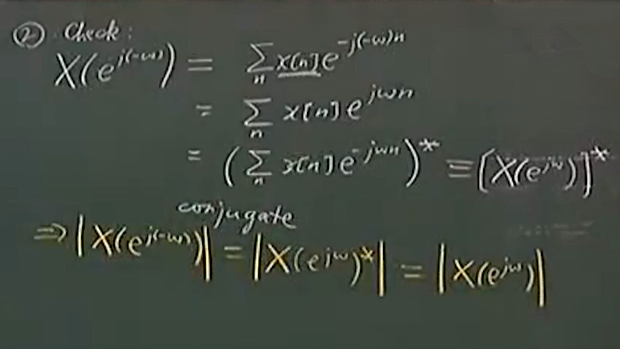 ② Check:
X(e^{j(-ω)}) = Σ_n x[n] e^{-j(-ω)n}
= Σ_n x[n] e^{jωn}
= (Σ_n x[n] e^{-jωn})^* ≡ [X(e^{jω})]^*
conjugate
⇒ |X(e^{j(-ω)})| = |X(e^{jω})^*| = |X(e^{jω})|